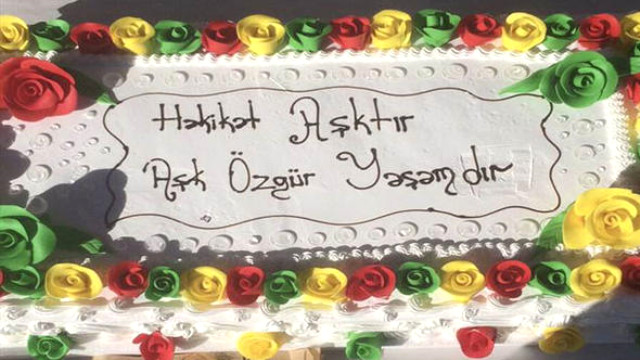 Həkikət Aşktır
Aşk Özgür Yəşəmdır